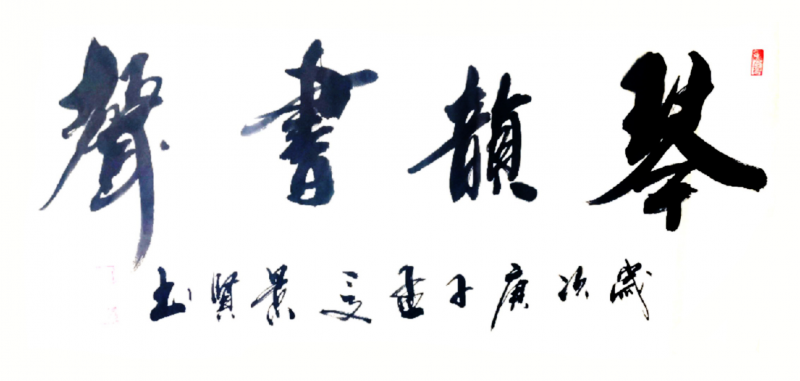 琴韻書聲
歲次庚子孟夏景賢书